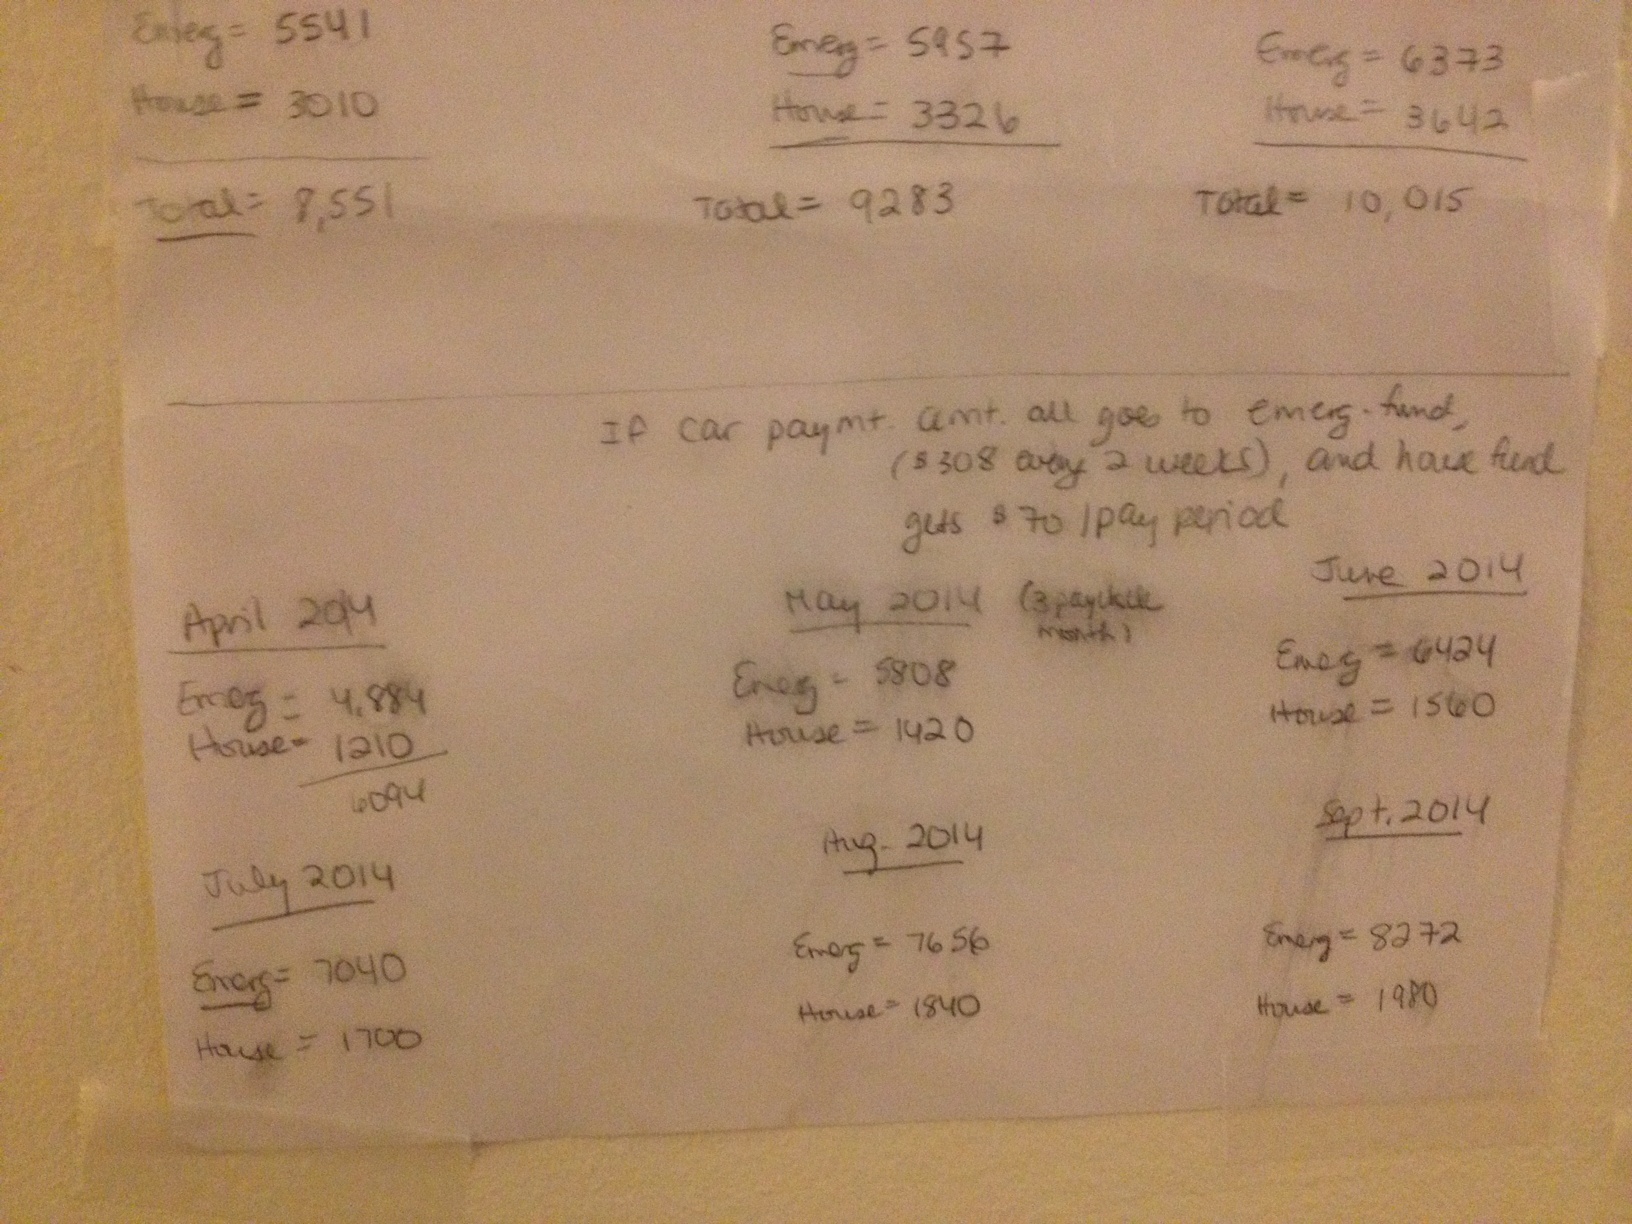 Emerg = 5541
House = 3010
Total = 8,551
Emerg = 5957
House = 3326
Total = 9283
Emerg = 6373
House = 3642
Total = 10,015
If car paymt. amt. all goes to emerg. fund,
($308 every 2 weeks), and house fund
gets $70 / pay period
April 2014
Emerg = 4,884
House = 1210
6094
May 2014 (3 paycheck
month)
Emerg = 5808
House = 1420
June 2014
Emerg = 6424
House = 1560
July 2014
Emerg = 7040
House = 1700
Aug. 2014
Emerg = 7656
House = 1840
Sept. 2014
Emerg = 8272
House = 1980